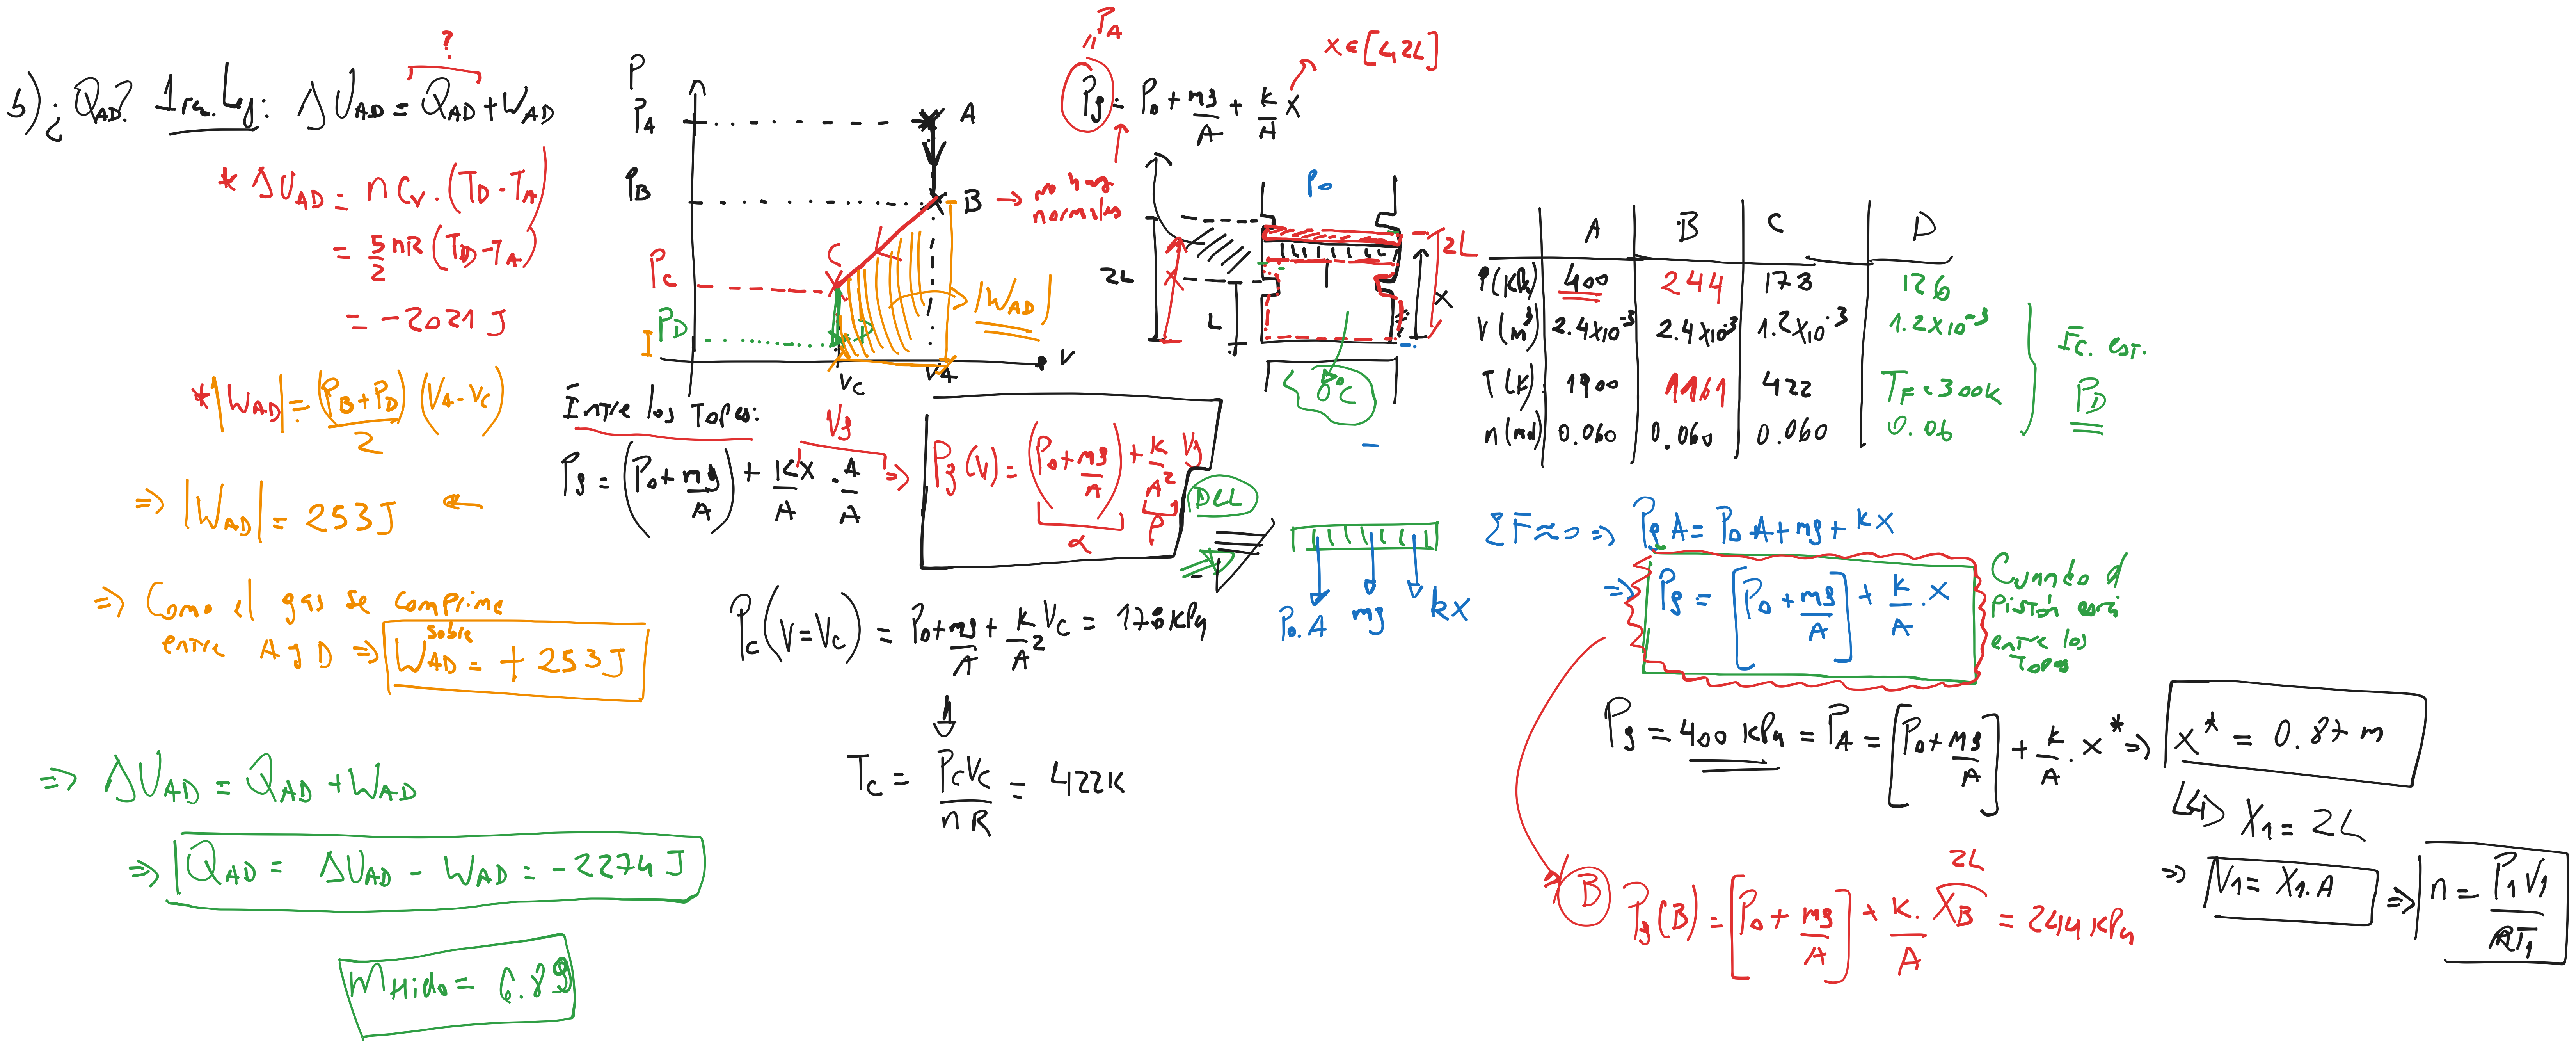 b) ¿Q_AD? 1ra. Ley: ΔU_AD = Q_AD + W_AD
?
* ΔU_AD = n C_V . (T_D - T_A)
= 5/2 nR (T_D - T_A)
= -2021 J
* |W_AD| = (P_B + P_D)/2 (V_A - V_C)
=> |W_AD| = 253 J
=> Como el gas se comprime
entre A y D => W_AD sobre = + 253 J
=> ΔU_AD = Q_AD + W_AD
=> Q_AD = ΔU_AD - W_AD = -2274 J
m_Hielo = 6.8 g
P
P_A
P_B
P_C
P_D
A
B
C
D
V_C
V_A
V
|W_AD|
-> no hay
normales
"P_A
P_g = P_0 + mg/A + k/A x
x ∈ [L, 2L]
P_0
2L
x
L
2L
x
0°C
Entre los Topes:
P_g = (P_0 + mg/A) + k/A x . A/A
V_g
=> P_g (V) = (P_0 + mg/A) + k/A² V_g
α
β
P_C (V = V_C) = P_0 + mg/A + k/A² V_C = 178 kPa
T_C = P_C V_C / nR = 422 K
A B C D
P (kPa) 400 244 178 126
V (m³) 2.4x10⁻³ 2.4x10⁻³ 1.2x10⁻³ 1.2x10⁻³
T (K) 1900 1161 422 T_F = 300K
n (mol) 0.060 0.060 0.060 0.06
Ec. est.
P_D
DCL
P_0 . A mg kx
ΣF ≈ 0 => P_g A = P_0 A + mg + kx
=> P_g = [P_0 + mg/A] + k/A . x
Cuando el
piston está
entre los
Topes
P_g = 400 kPa = P_A = [P_0 + mg/A] + k/A . x* => x* = 0.87 m
X_1 = 2L
=> V_1 = X_1 . A => n = P_1 V_1 / RT_1
B P_g (B) = [P_0 + mg/A] + k/A . X_B = 244 kPa
2L